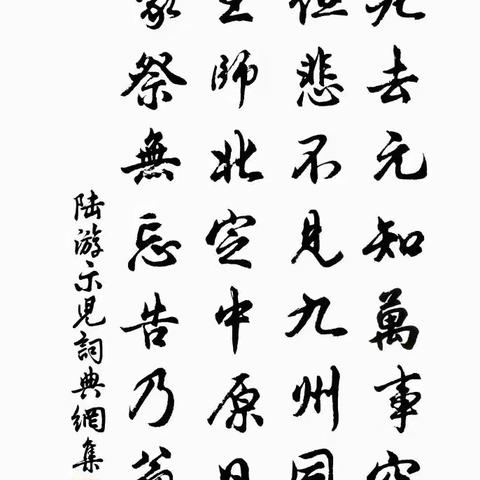 死去元知萬事空
但悲不見九州同
王師北定中原日
家祭無忘告乃翁
陆游示兒詞典網集